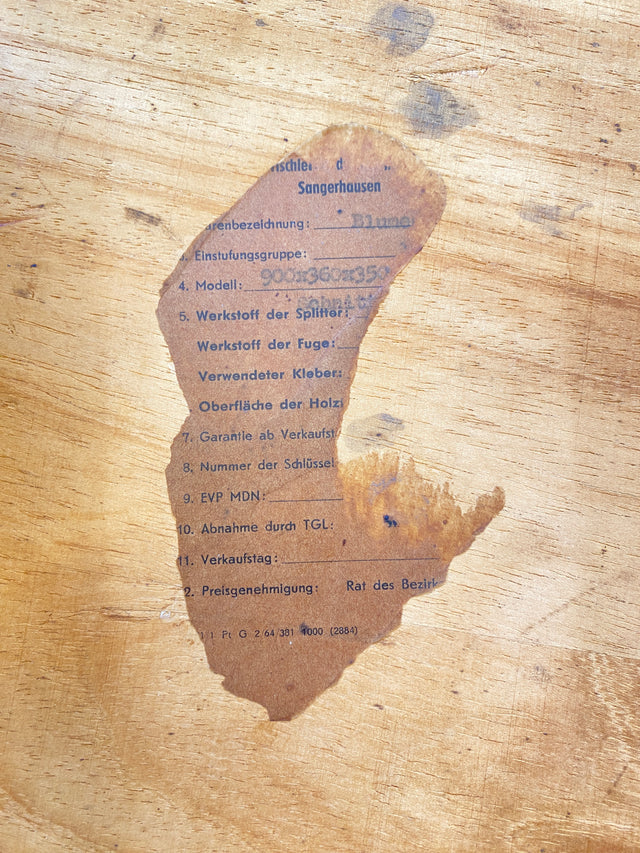 Sangerhausen
Einstufungsgruppe:
4. Modell: 900x360x350
5. Werkstoff der Splitter:
Werkstoff der Fuge:
Verwendeter Kleber:
Oberfläche der Holz
7. Garantie ab Verkaufst
8. Nummer der Schlüssel
9. EVP MDN:
10. Abnahme durch TGL:
11. Verkaufstag:
2. Preisgenehmigung: Rat des Bezirk
Pt G 2 64 381 4000 (2884)